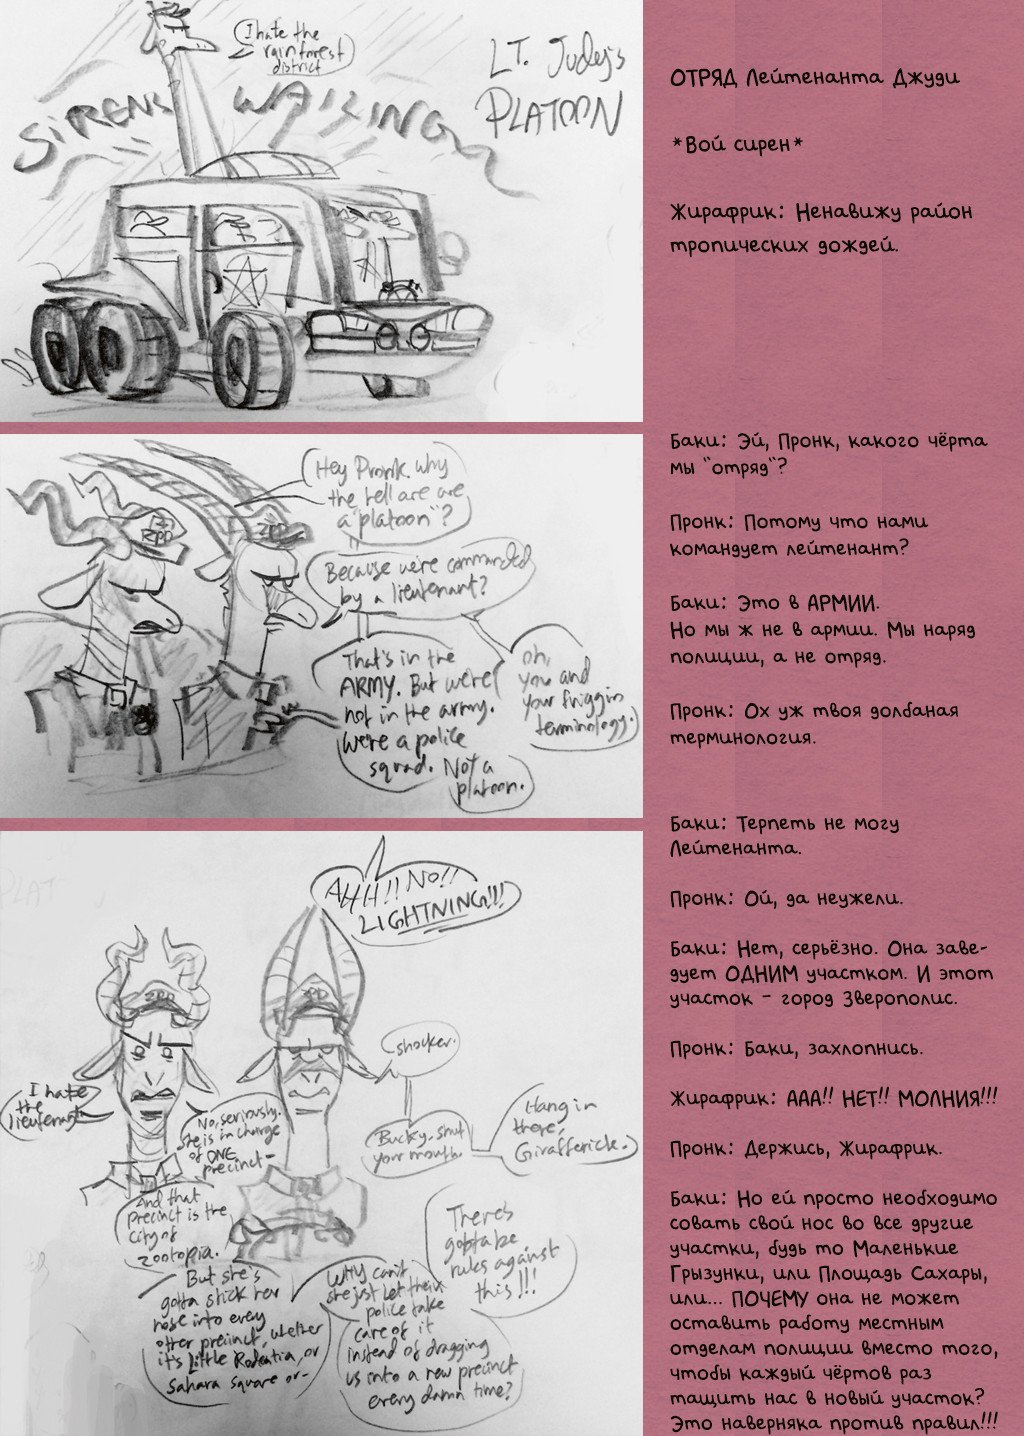 LT. Judy's
PLATOON
I hate the
rainforest
district
SIRENS WAILING
ОТРЯД Лейтенанта Джуди
*Вой сирен*
Жирафрик: Ненавижу район
тропических дождей.
Hey Pronk. why
the hell are are
a "platoon"?
Because we're commanded
by a lieutenant?
That's in the
ARMY. But we're
not in the army.
We're a police
squad. Not a
platoon.
oh,
you and
your friggin
terminology.
ZPD
ZPD
Баки: Эй, Пронк, какого чёрта
мы "отряд"?
Пронк: Потому что нами
командует лейтенант?
Баки: Это в АРМИИ.
Но мы ж не в армии. Мы наряд
полиции, а не отряд.
Пронк: Ох уж твоя долбаная
терминология.
AHH!! NO!!
LIGHTNING!!!
ZPD
ZPD
I hate
the
lieutenant
shocker.
No, seriously.
she is in charge
of ONE
precinct-
And that
precinct is the
city of
zootopia.
Bucky. shut
your mouth.
Hang in
there,
Girafferick.
But she's
gotta stick her
nose into every
other precinct, whether
it's Little Rodentia, or
Sahara Square or-
WHY can't
she just let their
police take
care of it
instead of dragging
us into a new precinct
every damn time?
There's
gotta be
rules against
this!!!
Баки: Терпеть не могу
Лейтенанта.
Пронк: Ой, да неужели.
Баки: Нет, серьёзно. Она заве-
дует ОДНИМ участком. И этот
участок - город Зверополис.
Пронк: Баки, захлопнись.
Жирафрик: ААА!! НЕТ!! МОЛНИЯ!!!
Пронк: Держись, Жирафрик.
Баки: Но ей просто необходимо
совать свой нос во все другие
участки, будь то Маленькие
Грызунки, или Площадь Сахары,
или... ПОЧЕМУ она не может
оставить работу местным
отделам полиции вместо того,
чтобы каждый чёртов раз
тащить нас в новый участок?
Это наверняка против правил!!!